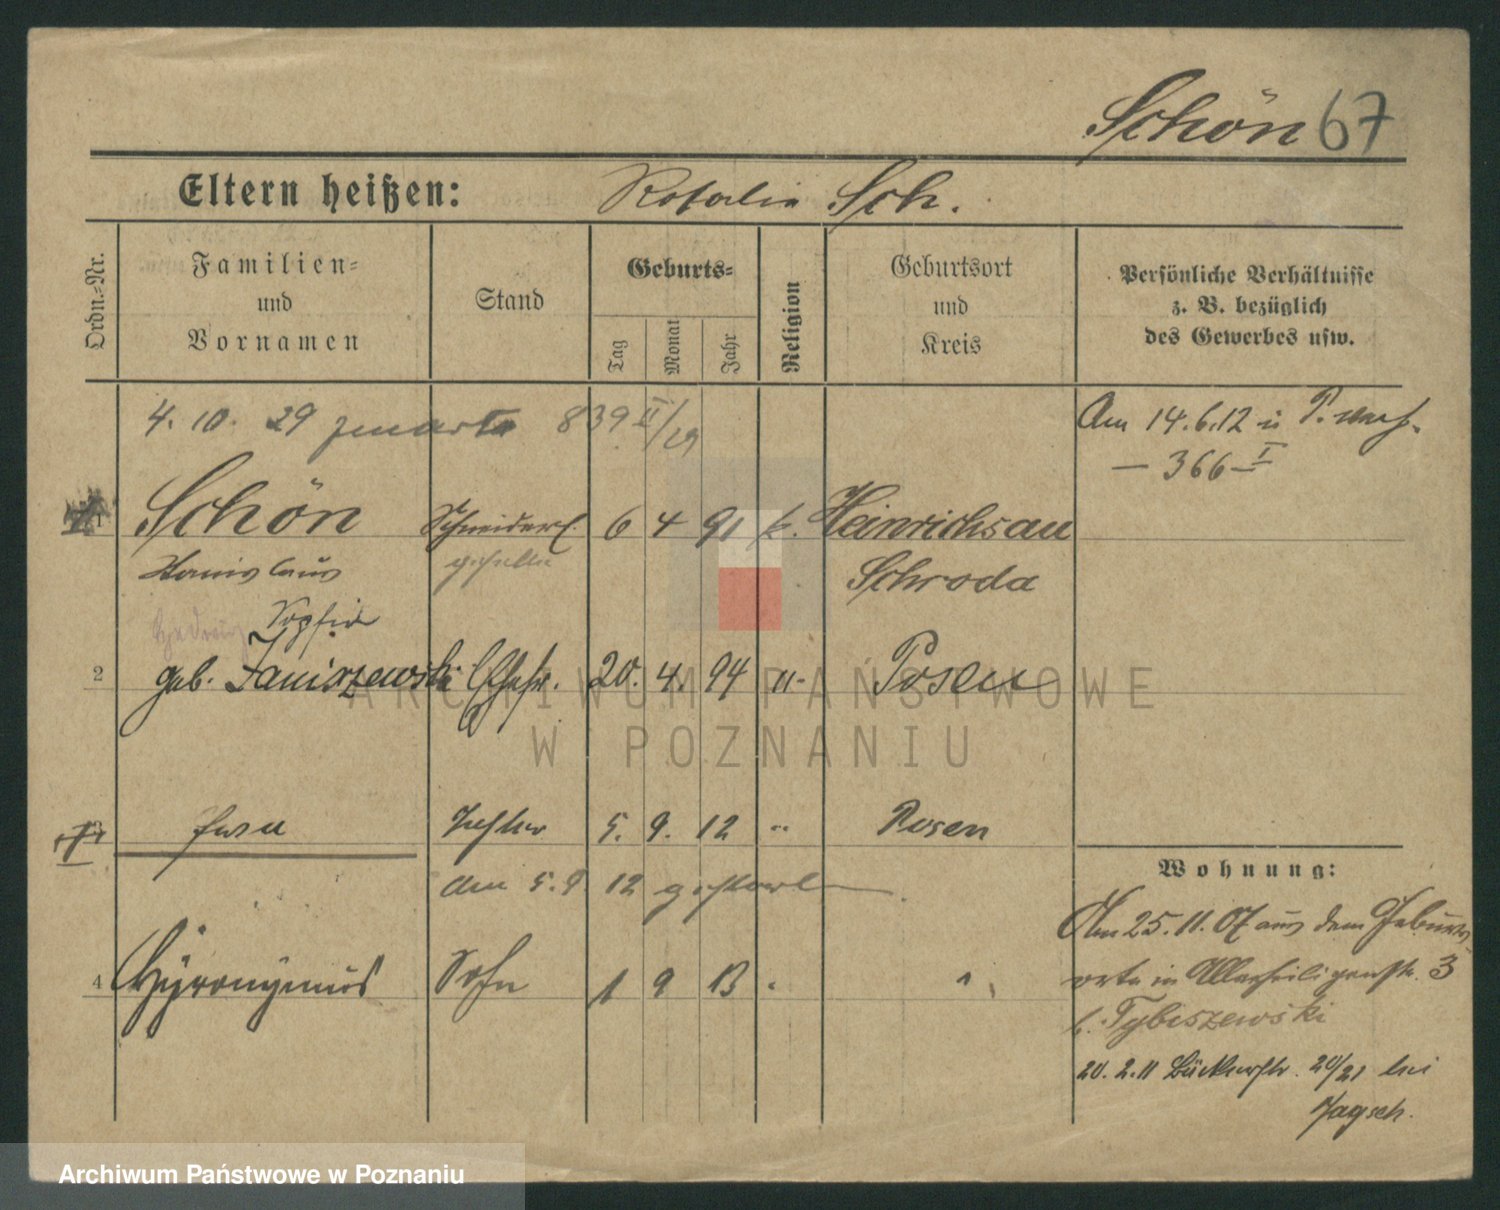 Schön 67
Eltern heißen: Rosalie Sch.
Ordn.-Nr.
Familien-
und
Vornamen
Stand
Geburts-
Tag
Monat
Jahr
Religion
Geburtsort
und
Kreis
Persönliche Verhältnisse
z. B. bezüglich
des Gewerbes usw.
4. 10. 29 zmarła 839 II/29
Am 14.6.12 P.
— 366 — I
1 Schön 6 4 91 k. Heinrichsau
Stanislaus geselle Schroda
Hedwig Sophie
2 geb. Janiszewski Ehefr. 20. 4. 94 -"- Posen
3 Tochter 5. 9. 12 " Posen
am 5.9 12 gestorben
4 Hyronymus Sohn 1 9 13 " "
Wohnung:
Am 25.11.07 aus dem Geburts-
orte in Allerheiligenstr. 3
b. Tybiszewski
20. 2. 11 Bäckerstr. 20/21 bei
Jagsch.
ARCHIWUM PAŃSTWOWE
W POZNANIU
Archiwum Państwowe w Poznaniu